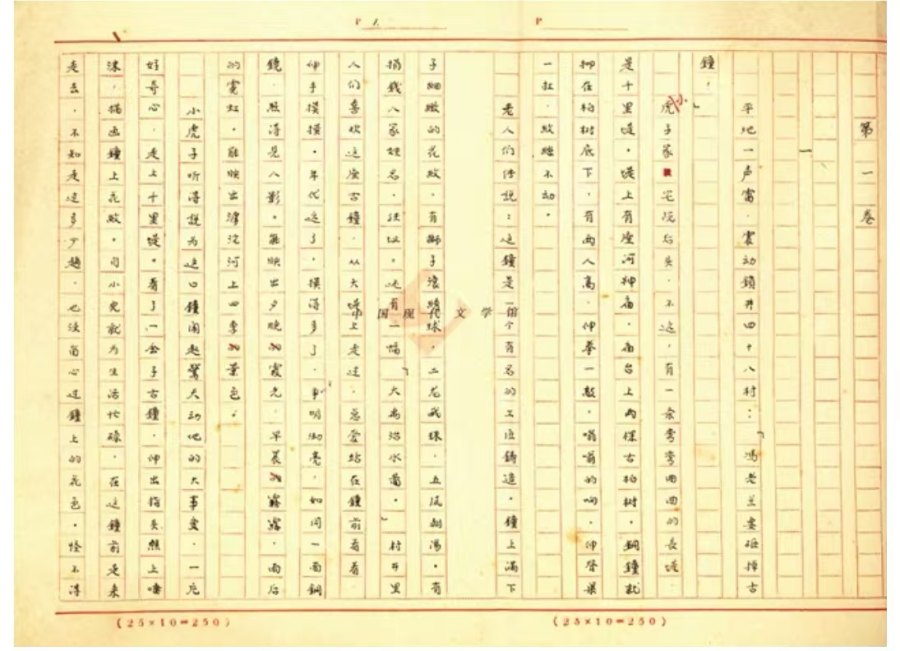 P 1. P
第一卷
一
平地一声雷，震动鎖井四十八村：「馮老兰要砸掉古
鐘。」
小虎子家宅院后头，不远，有一条弯弯曲曲的长堤，
是十里堤。堤上有座河神庙，庙台上两棵古柏树，銅鐘就
在柏树底下，有两人高，伸拳一敲，嗡嗡的响，伸臂
一扛，不动。
老人们传說：这鐘是一个有名的工匠鋳造。鐘上满下
子細緻的花紋，有獅子滚绣球，二龙戏珠，五凤朝阳。有
捐錢人家姓名，住址。还有一幅「大禹治水圖」。村里
人们喜欢这座古鐘，从大堤上走过，总爱站在鐘前看看
伸手摸摸。年代远了，摸得多了，明彻亮，如同一面銅
鏡，照得见人影。能映出夕晚的霞光，早晨的霧露，雨后
的霓虹，能映出滹沱河上四季的景色。
小虎子听得說为这口鐘闹起驚天动地的大事变，一片
好奇心，走上十里堤。看了一会子古鐘，伸出指头蘸上唾
沫，描画鐘上花紋。自小兒就为生活忙碌，在这鐘前走来
走去，不知走过多少趟，也沒留心过鐘上的花色。怪不得
中国现代文学馆
(25×10=250) (25×10=250)